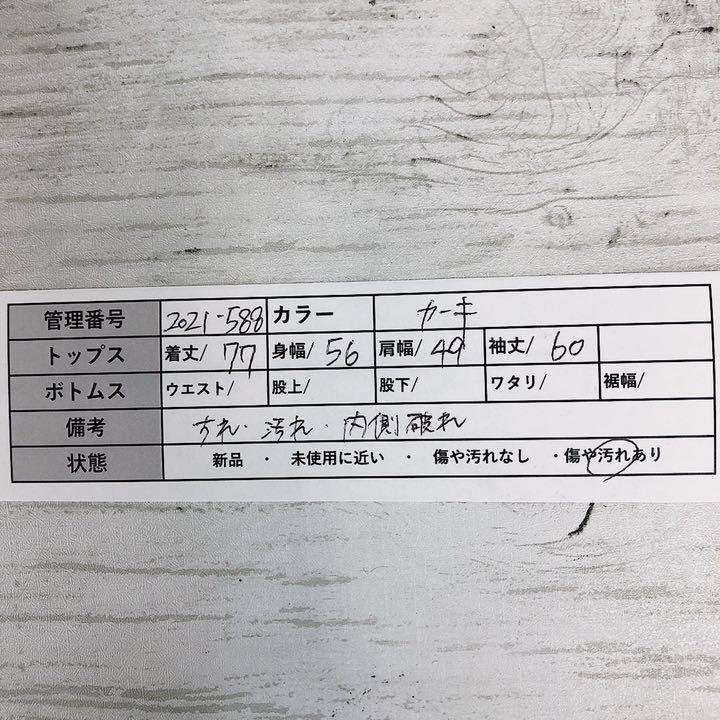 管理番号 2021-588 カラー カーキ
トップス 着丈/ 77 身幅/ 56 肩幅/ 49 袖丈/ 60
ボトムス ウエスト/ 股上/ 股下/ ワタリ/ 裾幅/
備考 すれ・汚れ・内側破れ
状態 新品 ・ 未使用に近い ・ 傷や汚れなし ・傷や汚れあり